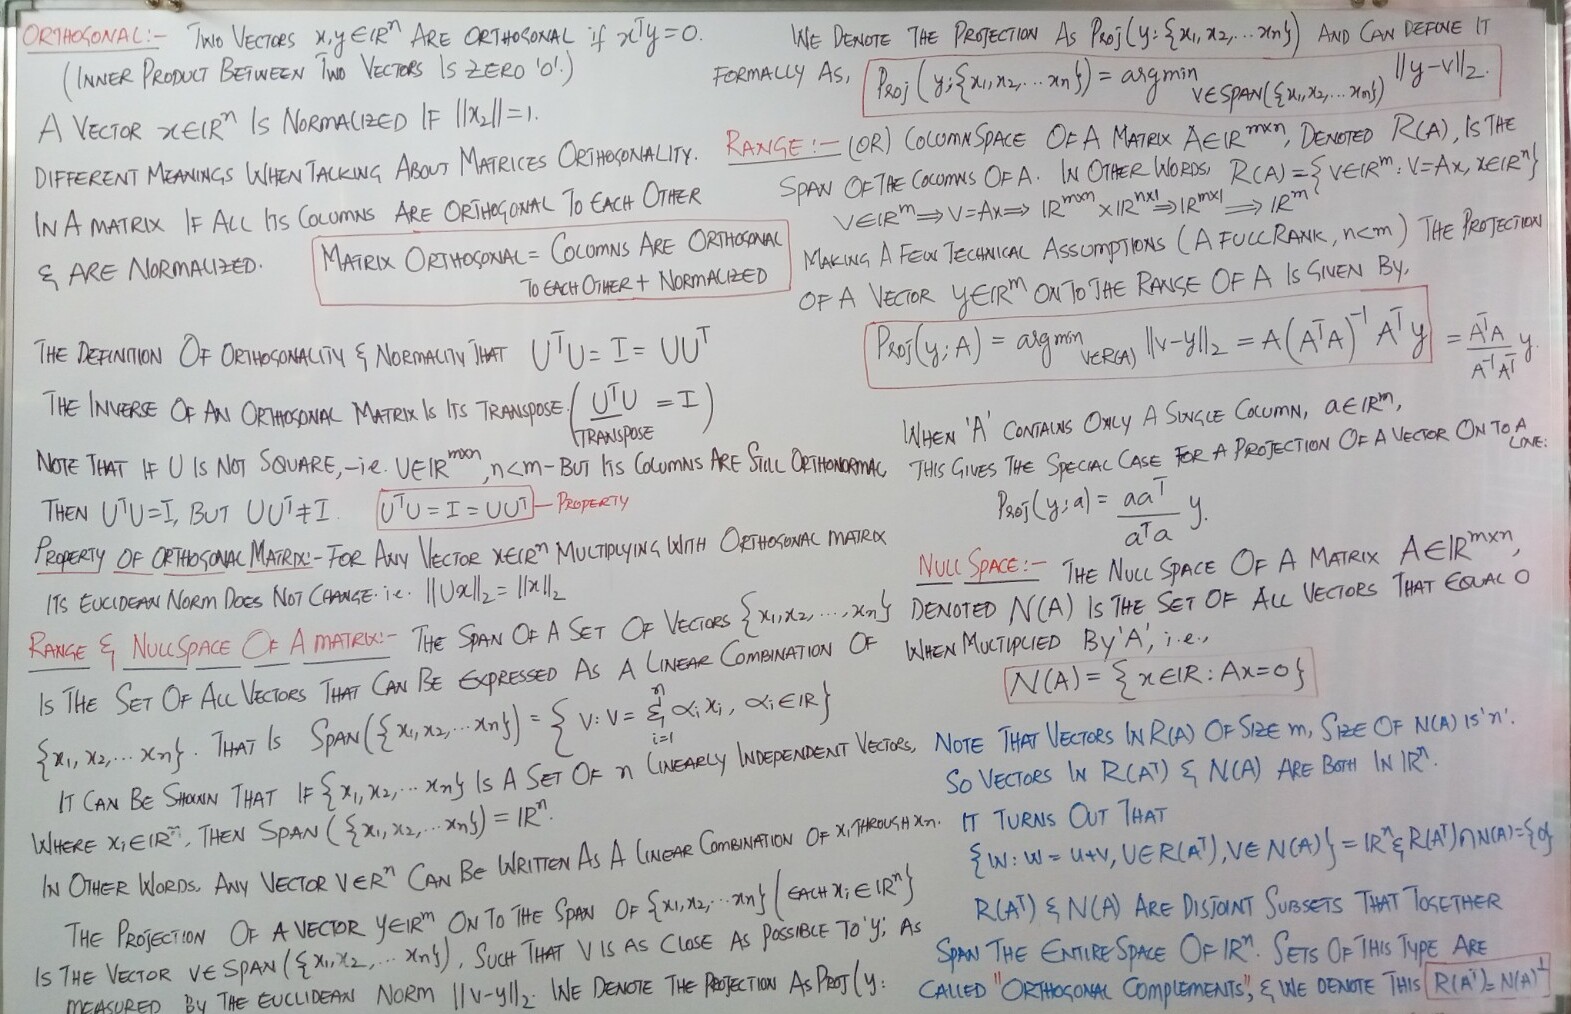 ORTHOGONAL:- TWO VECTORS x,y ∈ IRⁿ ARE ORTHOGONAL if xᵀy = 0.
(INNER PRODUCT BETWEEN TWO VECTORS IS ZERO '0'.)
A VECTOR x∈IRⁿ IS NORMALIZED IF ||x₂|| = 1.
DIFFERENT MEANINGS WHEN TALKING ABOUT MATRICES ORTHOGONALITY.
IN A MATRIX IF ALL ITS COLUMNS ARE ORTHOGONAL TO EACH OTHER
& ARE NORMALIZED.
MATRIX ORTHOGONAL = COLUMNS ARE ORTHOGONAL
TO EACH OTHER + NORMALIZED
THE DEFINITION OF ORTHOGONALITY & NORMALITY THAT UᵀU = I = UUᵀ
THE INVERSE OF AN ORTHOGONAL MATRIX IS ITS TRANSPOSE. (UᵀU = I)
TRANSPOSE
NOTE THAT IF U IS NOT SQUARE,-ie. U∈IRᵐˣⁿ, n<m - BUT ITS COLUMNS ARE STILL ORTHONORMAL
THEN UᵀU=I, BUT UUᵀ≠I. UᵀU = I = UUᵀ - PROPERTY
PROPERTY OF ORTHOGONAL MATRIX:- FOR ANY VECTOR x∈IRⁿ MULTIPLYING WITH ORTHOGONAL MATRIX
ITS EUCIDEAN NORM DOES NOT CHANGE. i.e. ||Ux||₂ = ||x||₂
RANGE & NULLSPACE OF A MATRIX:- THE SPAN OF A SET OF VECTORS {x₁,x₂, ..., xn}
IS THE SET OF ALL VECTORS THAT CAN BE EXPRESSED AS A LINEAR COMBINATION OF
{x₁, x₂,... xn}. THAT IS SPAN({x₁, x₂,... xn}) = {V: V = Σⁿᵢ₌₁ αᵢxᵢ, αᵢ∈IR}
IT CAN BE SHOWN THAT IF {x₁, x₂,... xn} IS A SET OF n LINEARLY INDEPENDENT VECTORS,
WHERE xᵢ∈IRⁿ, THEN SPAN ({x₁, x₂,... xn}) = IRⁿ.
IN OTHER WORDS, ANY VECTOR V∈Rⁿ CAN BE WRITTEN AS A LINEAR COMBINATION OF x₁ THROUGH xn.
THE PROJECTION OF A VECTOR y∈IRᵐ ON TO THE SPAN OF {x₁,x₂,... xn} (EACH xᵢ∈IRⁿ}
IS THE VECTOR V∈SPAN({x₁,x₂,... xn}), SUCH THAT V IS AS CLOSE AS POSSIBLE TO 'y', AS
MEASURED BY THE EUCLIDEAN NORM ||v-y||₂. WE DENOTE THE PROJECTION AS PROJ(y:
WE DENOTE THE PROJECTION AS PROJ(y: {x₁, x₂,... xn}) AND CAN DEFINE IT
FORMALLY AS, PROJ(y; {x₁,x₂,... xn}) = argmin V∈SPAN({x₁,x₂,... xn}) ||y-v||₂.
RANGE:- (OR) COLUMN SPACE OF A MATRIX A∈IRᵐˣⁿ, DENOTED R(A), IS THE
SPAN OF THE COLUMNS OF A. IN OTHER WORDS, R(A) = {V∈IRᵐ : V=Ax, x∈IRⁿ}
V∈IRᵐ ⟹ V=Ax ⟹ IRᵐˣⁿ × IRⁿˣ¹ ⟹ IRᵐˣ¹ ⟹ IRᵐ
MAKING A FEW TECHNICAL ASSUMPTIONS (A FULL RANK, n<m) THE PROJECTION
OF A VECTOR y∈IRᵐ ON TO THE RANGE OF A IS GIVEN BY,
PROJ(y; A) = argmin V∈R(A) ||v-y||₂ = A(AᵀA)⁻¹Aᵀy = AᵀA/A⁻¹Aᵀ y.
WHEN 'A' CONTAINS ONLY A SINGLE COLUMN, a∈IRᵐ,
THIS GIVES THE SPECIAL CASE FOR A PROJECTION OF A VECTOR ON TO A LINE:
PROJ(y;a) = aaᵀ/aᵀa y.
NULL SPACE:- THE NULL SPACE OF A MATRIX A∈IRᵐˣⁿ,
DENOTED N(A) IS THE SET OF ALL VECTORS THAT EQUAL 0
WHEN MULTIPLIED BY 'A', i.e.,
N(A) = {x∈IR : Ax=0}
NOTE THAT VECTORS IN R(A) OF SIZE m, SIZE OF N(A) IS 'n'.
SO VECTORS IN R(Aᵀ) & N(A) ARE BOTH IN IRⁿ.
IT TURNS OUT THAT
{W: W = U+V, U∈R(Aᵀ), V∈N(A)} = IRⁿ & R(Aᵀ)∩N(A)={0}
R(Aᵀ) & N(A) ARE DISJOINT SUBSETS THAT TOGETHER
SPAN THE ENTIRE SPACE OF IRⁿ. SETS OF THIS TYPE ARE
CALLED "ORTHOGONAL COMPLEMENTS", & WE DENOTE THIS R(Aᵀ)=N(A)⊥